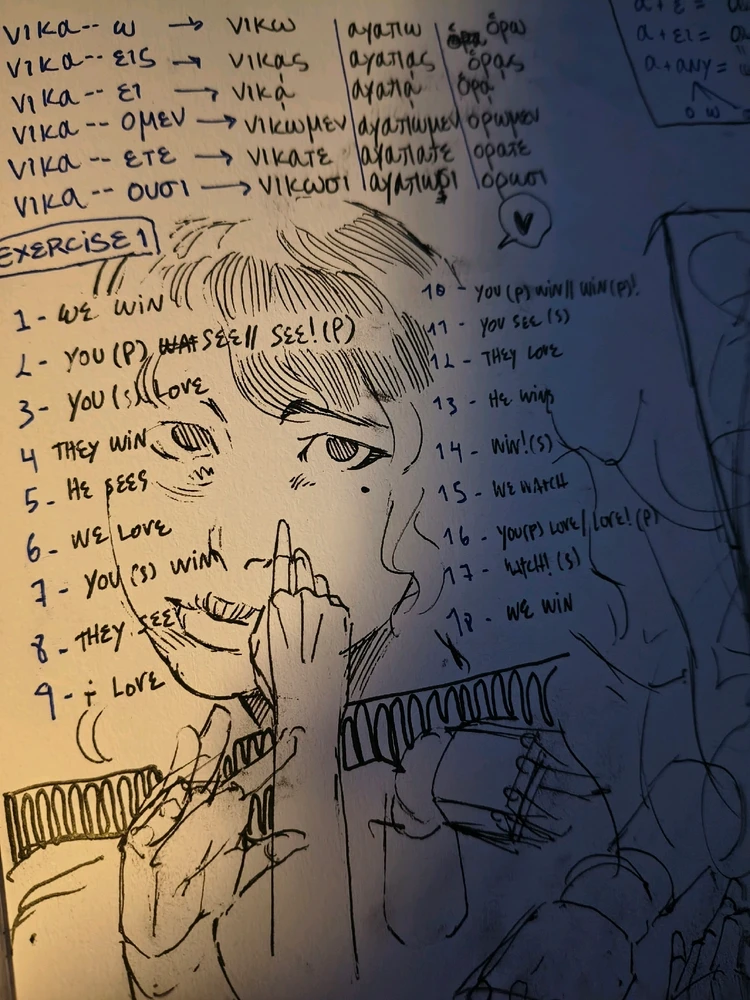 νικα-- ω → νικω | αγαπω | ὁρω
νικα-- εις → νικᾳς | αγαπᾳς | ὁρᾳς
νικα-- ει → νικᾳ | αγαπᾳ | ὁρᾳ
νικα-- ομεν → νικωμεν | αγαπωμεν | ὁρωμεν
νικα-- ετε → νικατε | αγαπατε | ορατε
νικα-- ουσι → νικωσι | αγαπωσι | ορωσι
α + ει =
α + ανy =
ο ω
EXERCISE 1
1 - WE WIN
2 - YOU (P) SEE // SEE! (P)
3 - YOU (S) LOVE
4 THEY WIN
5 - HE SEES
6 - WE LOVE
7 - YOU (S) WIN
8 - THEY SEE
9 - i LOVE
10 - YOU (P) WIN // WIN (P)!
11 - YOU SEE (S)
12 - THEY LOVE
13 - HE WINS
14 - WIN! (S)
15 - WE WATCH
16 - YOU(P) LOVE / LOVE! (P)
17 - WATCH! (S)
18 - WE WIN